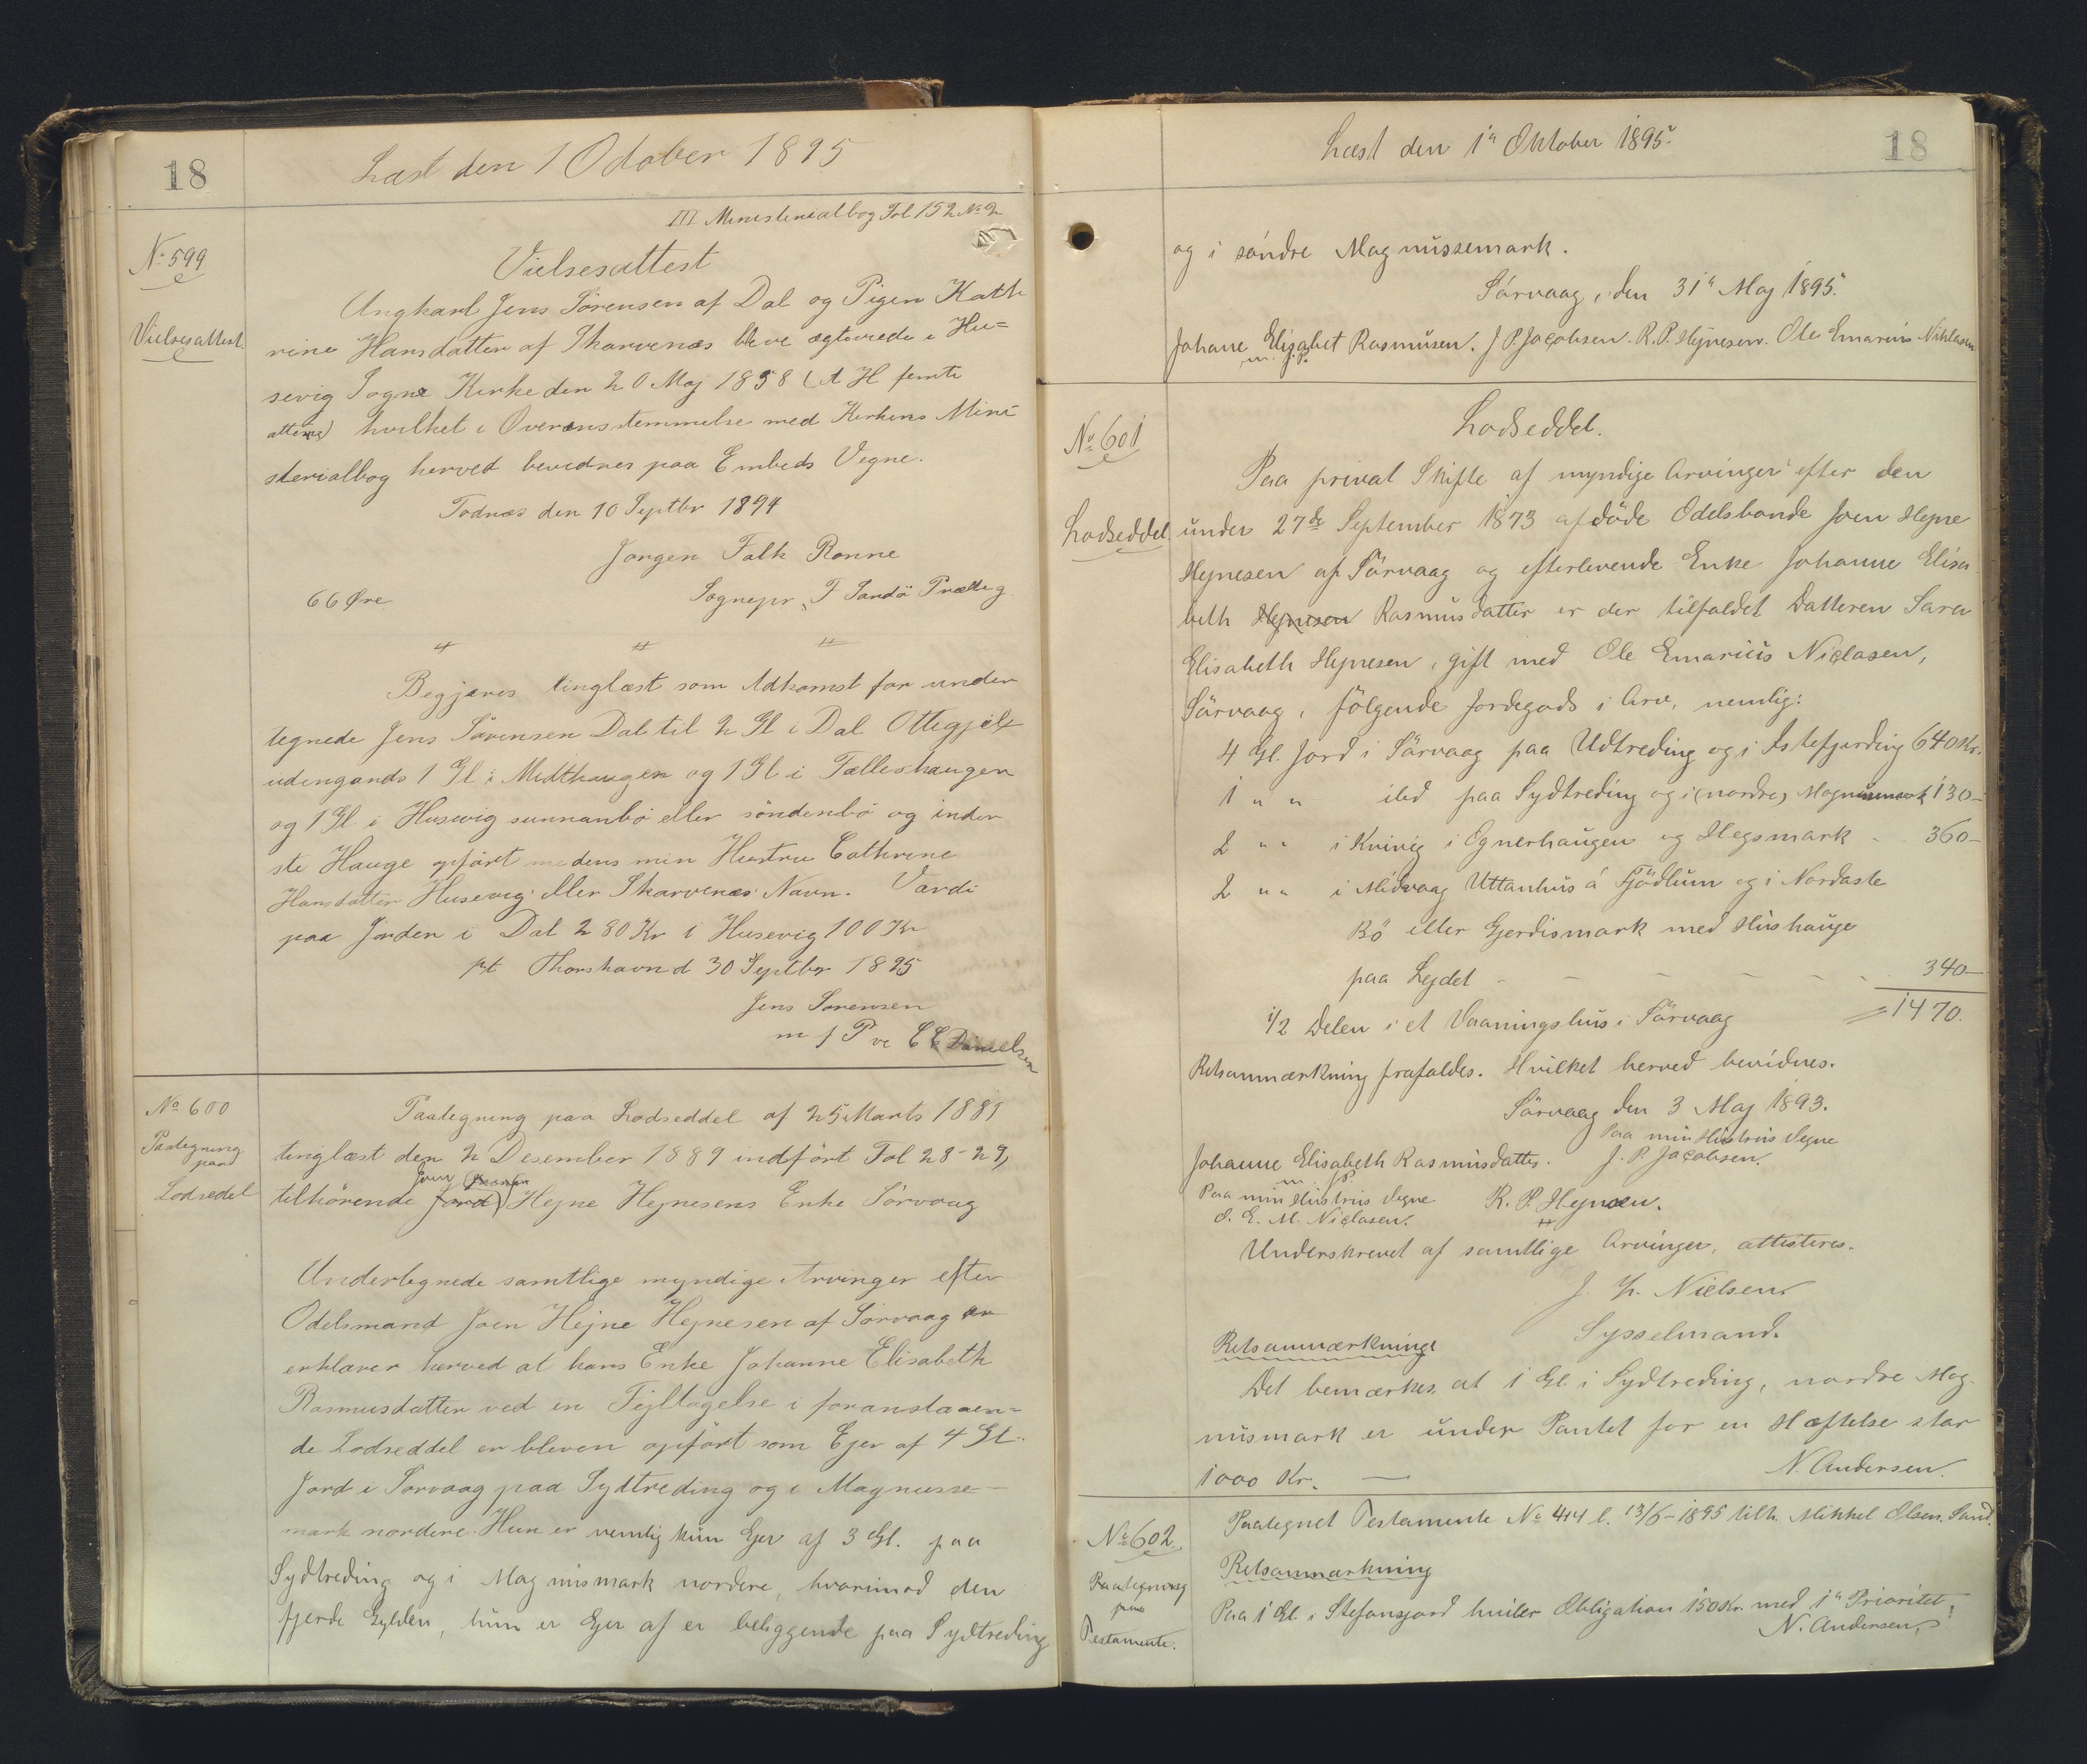 18
Læst den 1 October 1895
III Ministerialbog Fol 152 No 2
No 599
Vielsesattest
Vielsesattest
Ungkarl Jens Sørensen af Dal og Pigen Kath
rine Hansdatter af Skarvenæs bleve ægteviede i Hu=
sevig Sogne Kirke den 20 Maj 1858 (A H femti
otteng) hvilket i Overensstemmelse med Kirkens Mini
sterialbog herved bevidnes paa Embeds Vegne.
Todnæs den 10 Septbr 1894
Jørgen Falk Rønne
66 Øre
Sognepr. F Sandö Præsteg.
Begjæres tinglæst som Adkomst for under
tegnede Jens Sörensen Dal til 2 Gl i Dal Ottegjelx
udengands 1 Gl i Midthaugen og 1 Gl i Fælleshaugen
og 1 Gl i Husevig sunnanbö eller söndenbö og inder
ste Hauge opfört medens min Hustru Cathrine
Hansdatter Husevig eller Skarvenæs Navn. Værdi
paa Jorden i Dal 280 Kr i Husevig 100 Kr
pt Thorshavn d 30 Septbr 1895
Jens Sørensen
m f P ve C C Danielsen
No 600
Paategning
paa
Lodsedel
Paategning paa Lodseddel af 25 Marts 1881
tinglæst den 2 Desember 1889 indfört Fol 28-29,
Joen
tilhörende Jord) Hejne Hejnesens Enke Sörvaag
Undertegnede samtlige myndige Arvinger efter
Odelsmand Joen Hejne Hejnesen af Sörvaag
erklærer herved at hans Enke Johanne Elisabeth
Rasmusdatter ved en Fejltagelse i foranstaaen=
de Lodseddel er bleven opfört som Ejer af 4 Gl.
Jord i Sorvaag paa Sydtreding og i Magnusse-
mark nordere. Hun er nemlig kun Ejer af 3 Gl. paa
Sydtreding og i Magnusmark nordere, hvorimod den
fjerde Gylden, hun er Ejer af er beliggende paa Sydtreding
Læst den 1ste Oktober 1895.
18
og i søndre Magnussemark.
Sörvaag, den 31te Maj 1895.
Johane Elisabet Rasmusen. J P. Jacobsen. R. P. Hejnesen. Ole Emarius Niklasen
m. f. P.
No 601
Lodseddel.
Lodseddel
Paa privat Skifte af myndige Arvinger efter den
under 27de September 1873 afdöde Odelsbonde Joen Hejne
Hejnesen af Sörvaag og efterlevende Enke Johanne Elisa
beth Hejnesen Rasmusdatter er der tilfaldet Datteren Sara
Elisabeth Hejnesen, gift med Ole Emarius Niclasen,
Sörvaag, fölgende Jordegods i Arv, nemlig:
4 Gl. Jord i Sörvaag paa Udtreding og i Istefjerding 640 Kr.
1 " " ibd paa Sydtreding og i (nordre) Magnusmark 130-
2 " " i Kvivig i Ognerhaugen og Hegsmark - 360-
2 " " i Midvaag Uttanhus á Fjödlum og i Nordaste
Bö eller Gjerdismark med Hushauge
paa Lejdet - - - - - 340-
1/2 Delen i et Vaaningshus i Sörvaag = 1470.
Retsanmærkning frafaldes. Hvilket herved bevidnes.
Sörvaag den 3 Maj 1893.
Paa min Hustrus Vegne
Johanne Elisabeth Rasmusdatter. J. P. Jacobsen.
m. f. P.
Paa min Hustrus Vegne R. P. Hejnesen.
O. E. M. Niclasen.
Underskrevet af samtlige Arvinger, attesteres.
J. H. Nielsen
Sysselmand.
Retsanmærkning
Det bemærkes, at 1 Gl. i Sydtreding, nordre Mag-
nusmark er under Pantet for en Hæftelse stor
1000 Kr. —
N. Andersen.
No 602
Paategning
paa
Testamente.
Paategnet Testamente No 414 l. 13/6-1895 tilh. Mikkel Olsen, Sand.
Retsanmærkning
Paa 1 Gl. i Stefansjord hviler Obligation 150 Kr. med 1ste Prioritet.
N. Andersen